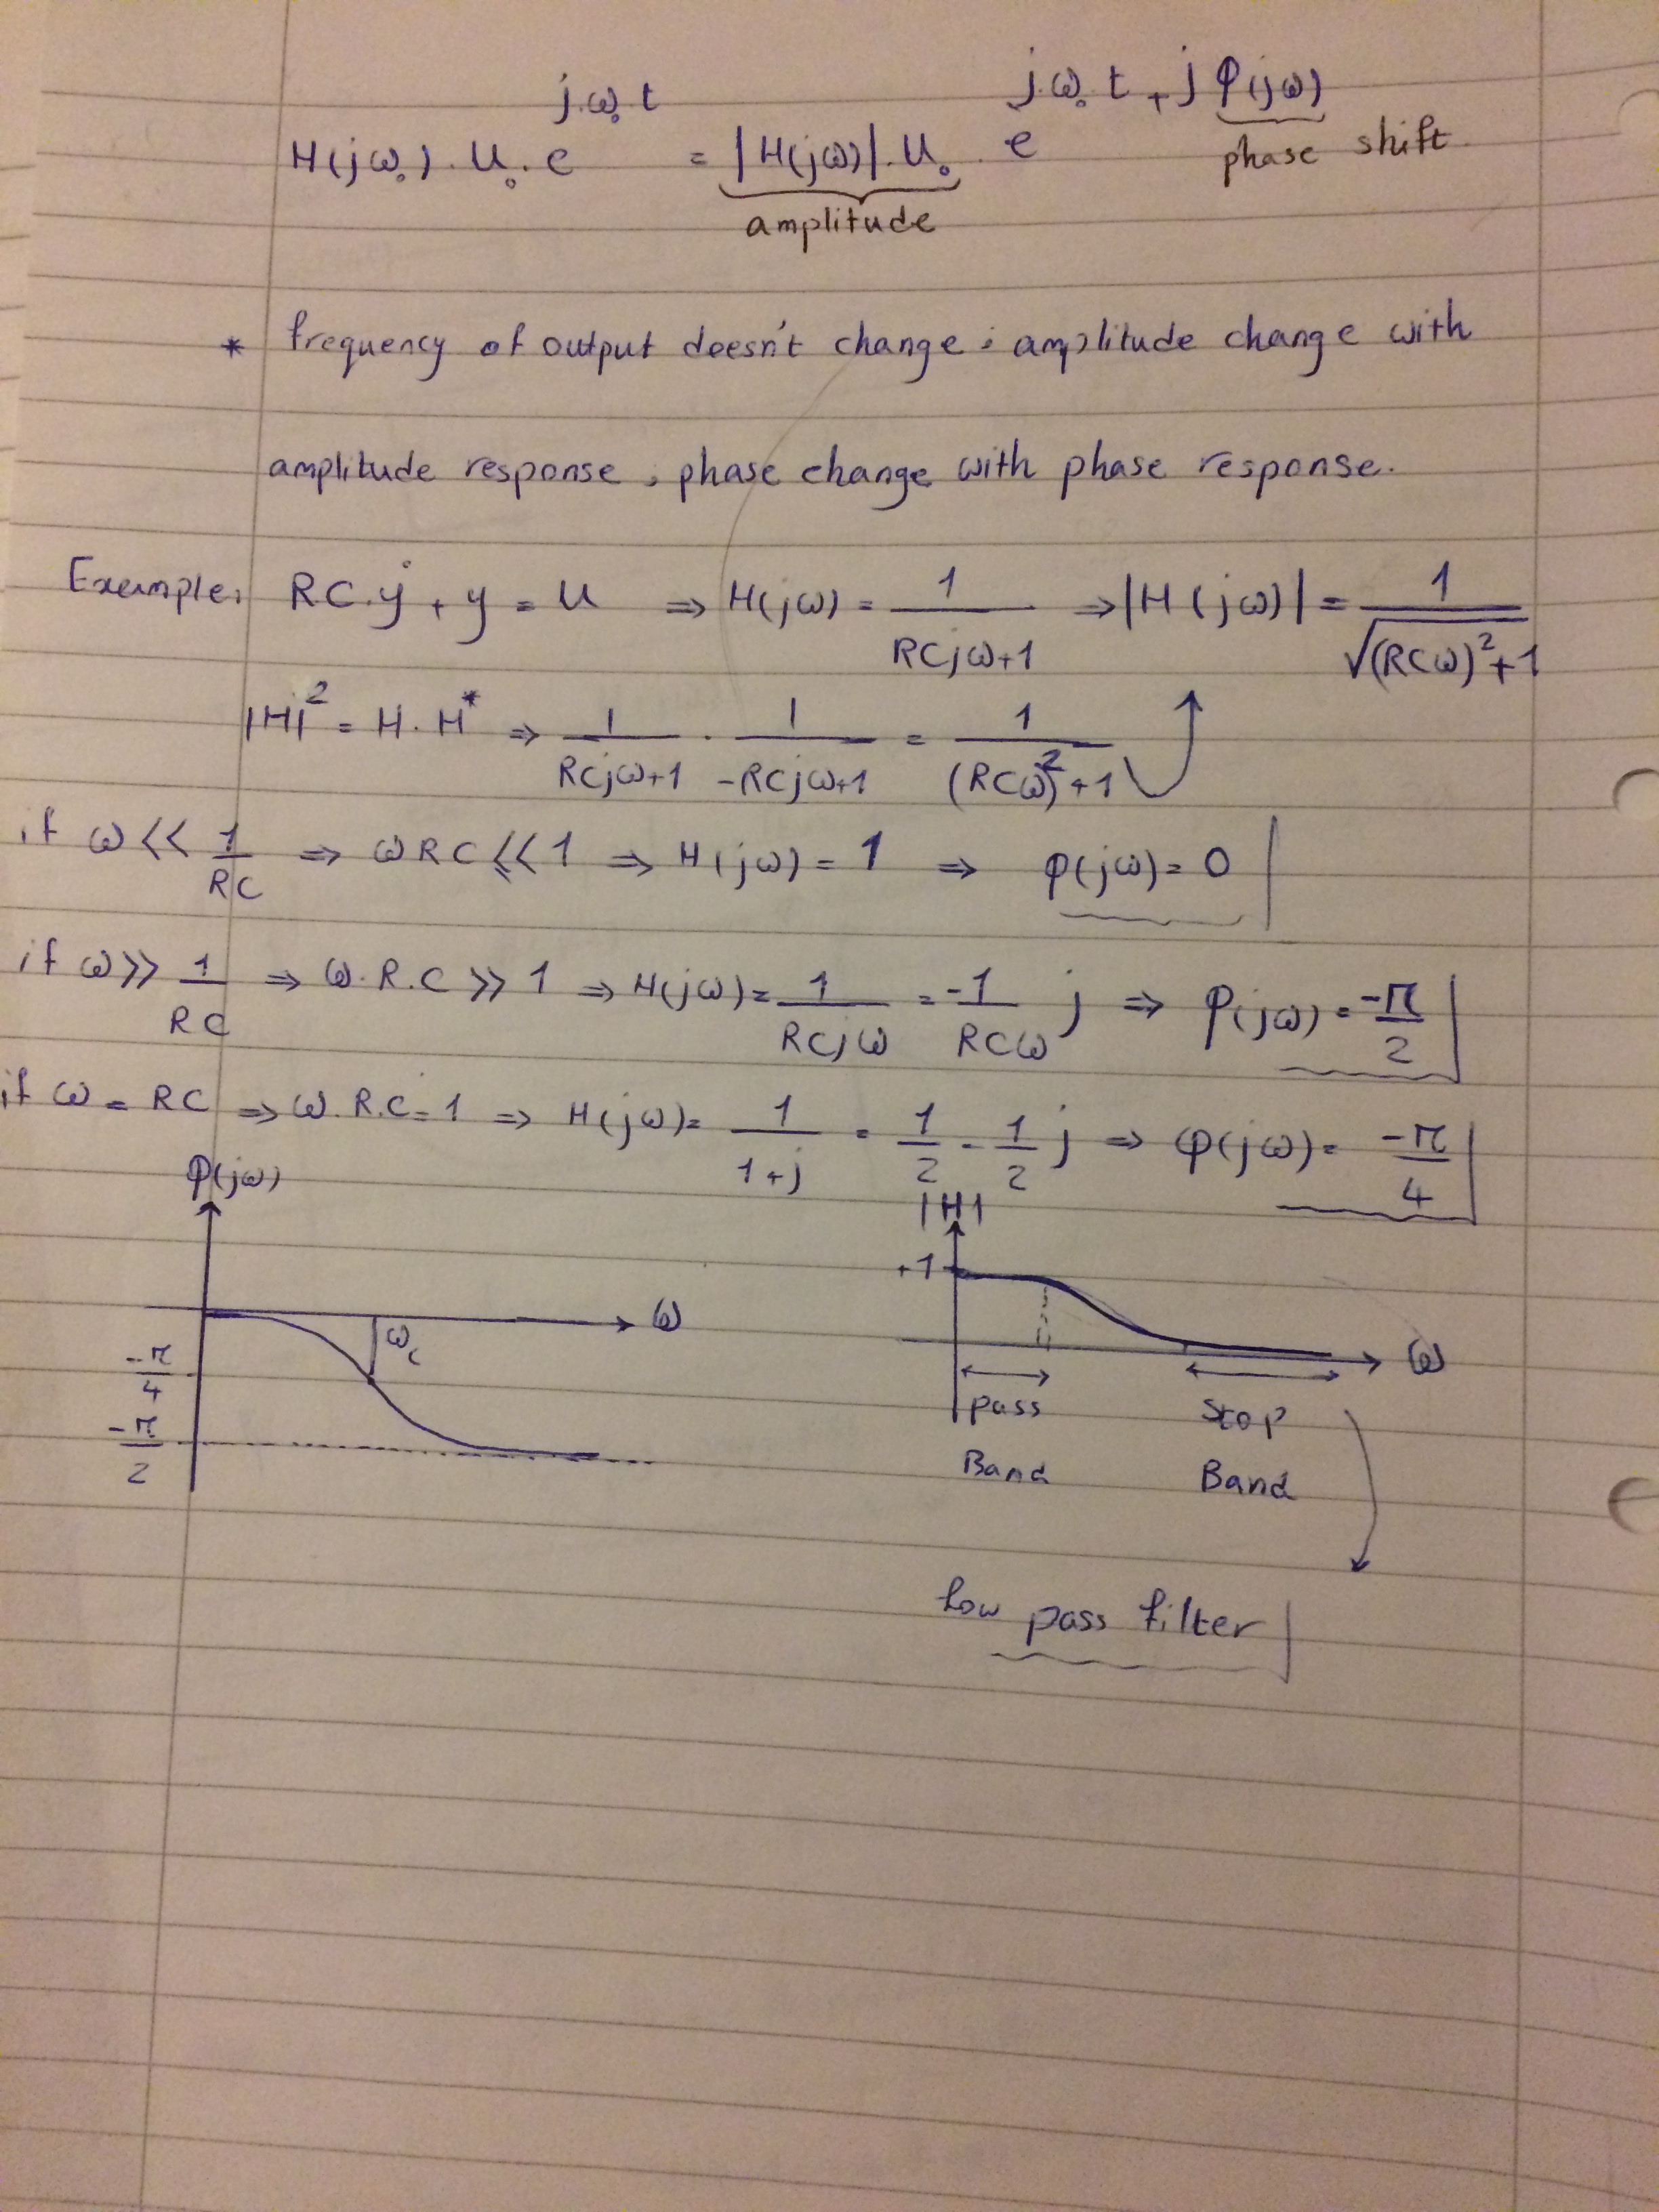 H(jω₀) . U₀ . e^{jω₀t} = |H(jω)| . U₀ . e^{jω₀t + jφ(jω)}
amplitude phase shift
* frequency of output doesn't change , amplitude change with
amplitude response , phase change with phase response.
Example: RC.ẏ + y = u ⇒ H(jω) = 1/(RCjω+1) ⇒ |H(jω)| = 1/√((RCω)²+1)
|H|² = H . H* ⇒ 1/(RCjω+1) . 1/(-RCjω+1) = 1/((RCω)²+1)
if ω << 1/RC ⇒ ωRC << 1 ⇒ H(jω) = 1 ⇒ φ(jω) = 0
if ω >> 1/RC ⇒ ω.R.C >> 1 ⇒ H(jω) = 1/(RCjω) = -1/(RCω) j ⇒ φ(jω) = -π/2
if ω = RC ⇒ ω.R.C = 1 ⇒ H(jω) = 1/(1+j) = 1/2 - 1/2 j ⇒ φ(jω) = -π/4
φ(jω)
ω
ω_c
-π/4
-π/2
|H|
+1
ω
pass Stop
Band Band
Low pass filter